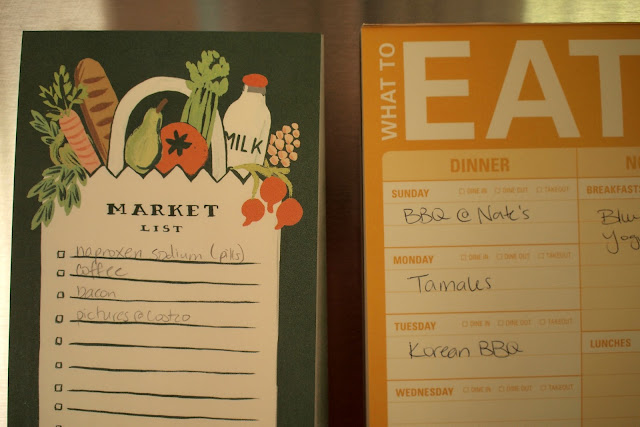 MILK
MARKET
LIST
naproxen sodium (pills)
coffee
bacon
pictures@Costco
WHAT TO
EAT
DINNER
SUNDAY DINE IN DINE OUT TAKEOUT
BBQ @ Nate's
MONDAY DINE IN DINE OUT TAKEOUT
Tamales
TUESDAY DINE IN DINE OUT TAKEOUT
Korean BBQ
WEDNESDAY DINE IN DINE OUT TAKEOUT
BREAKFASTS
LUNCHES